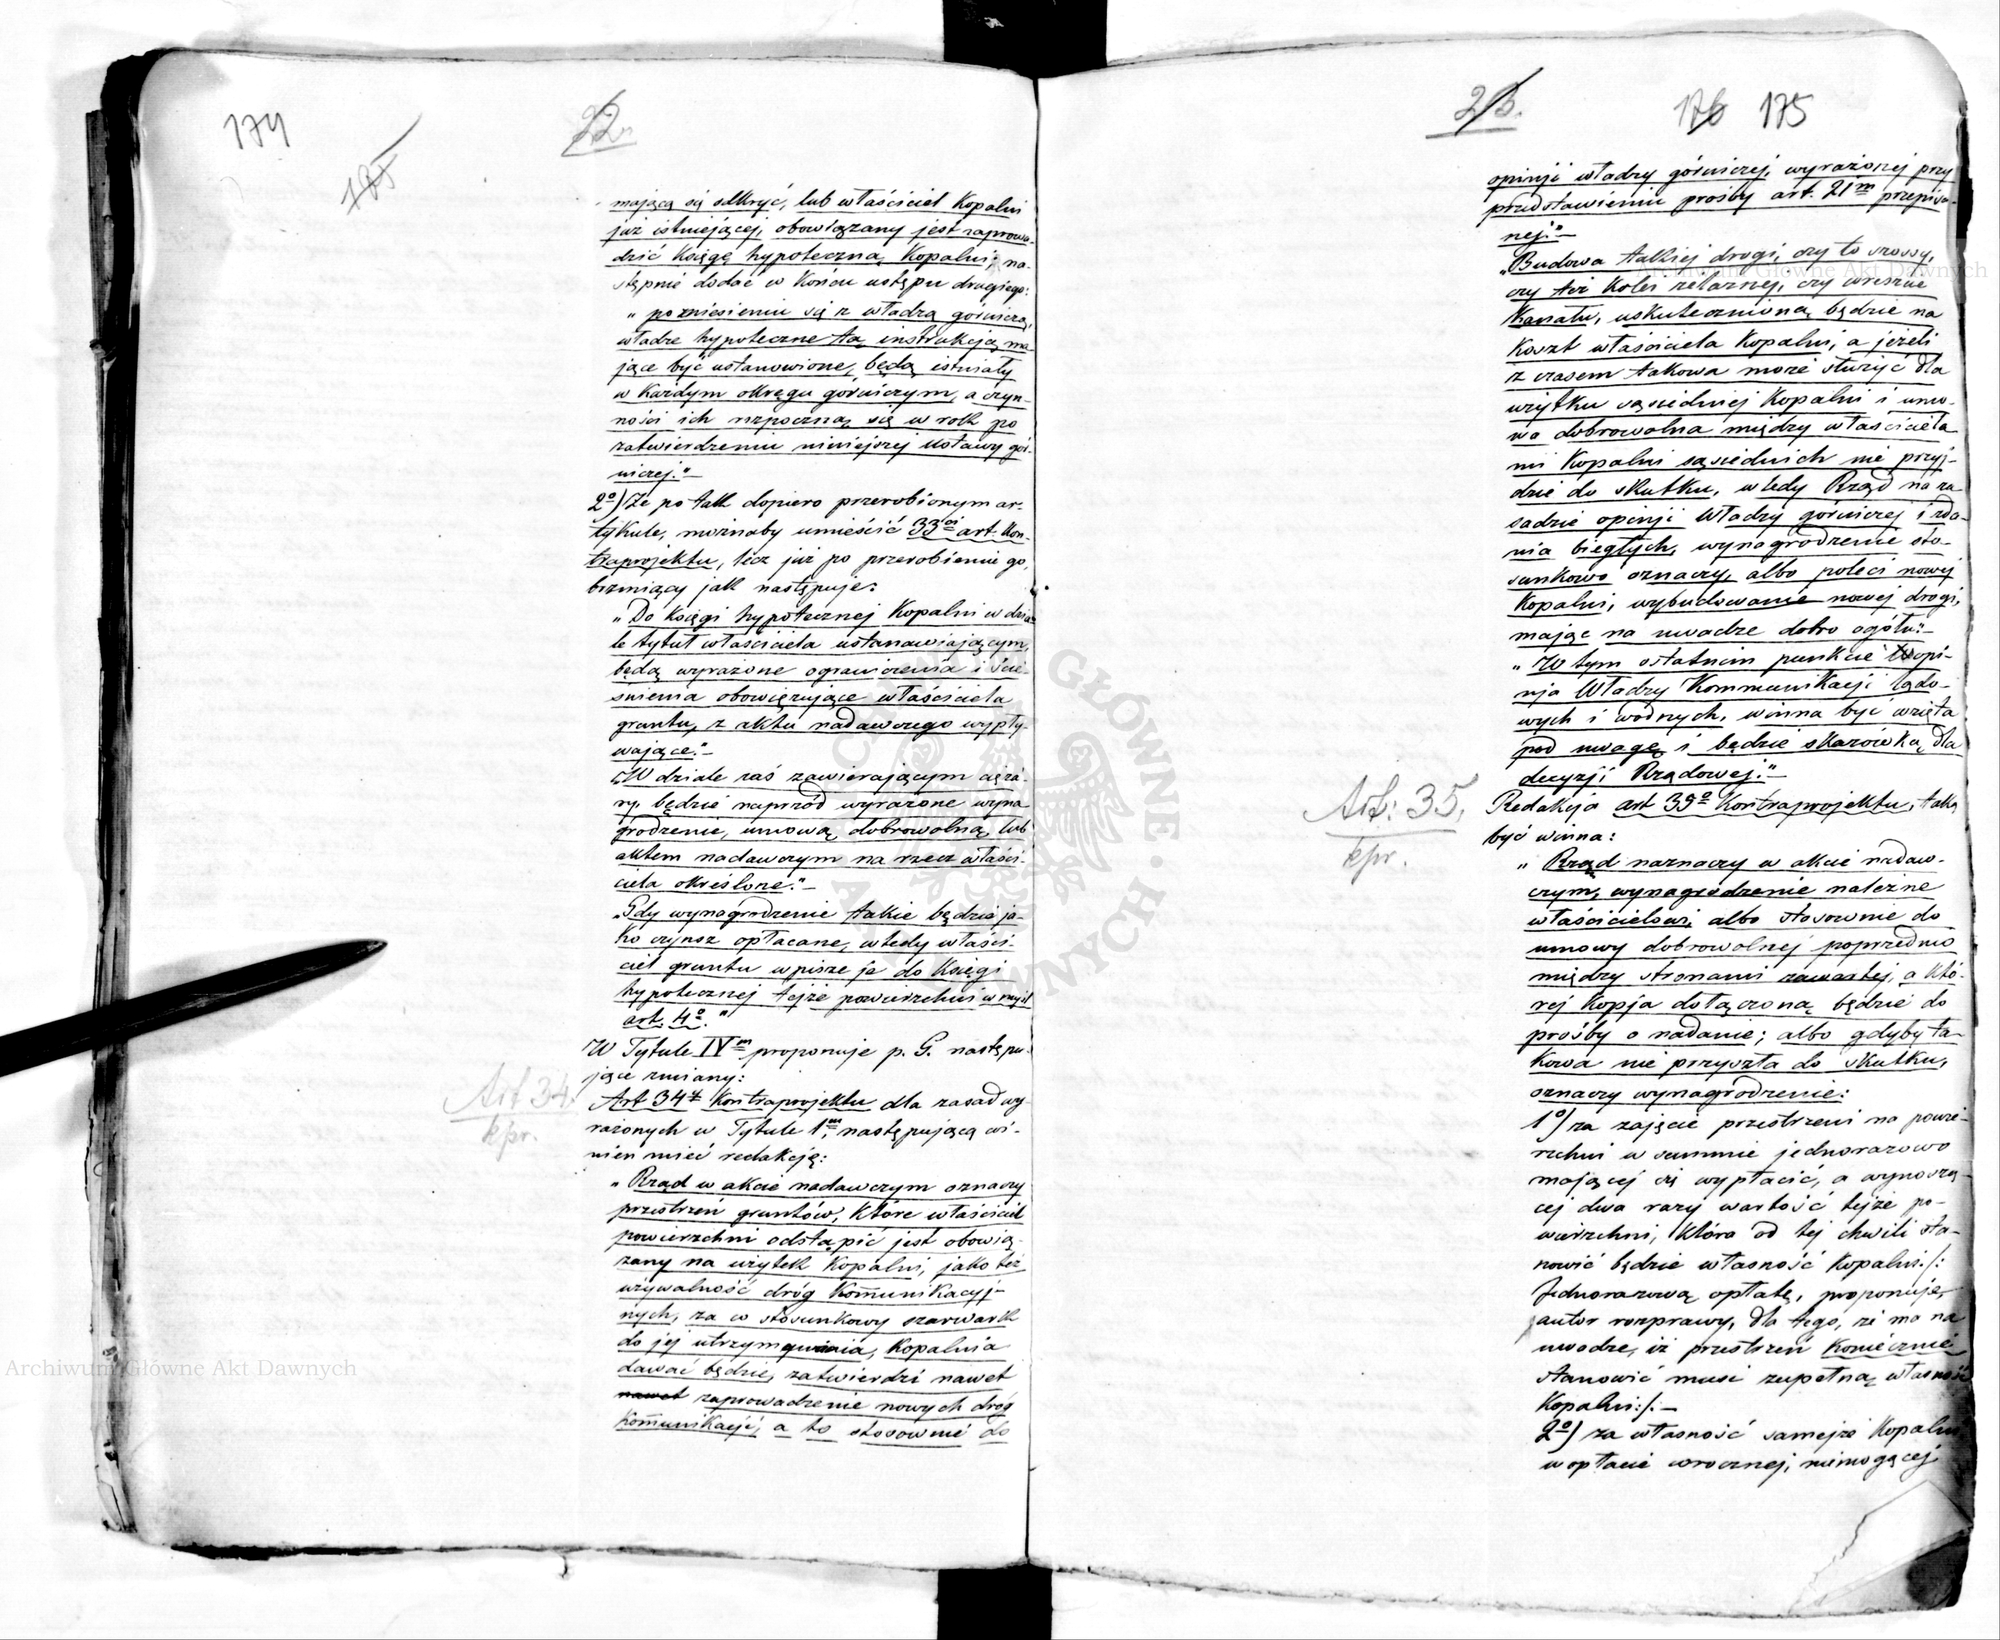 174
175
22.
mającą się odkryć, lub właściciel Kopalni
już istniejącej, obowiązany jest zaprowa-
dzić Księgę hypoteczną Kopalni; na-
stępnie dodać w Końcu ustępu drugiego:
„po zniesieniu się z władzą górniczą,
władze hypoteczne tą instrukcją ma-
jące być ustanowione, będą istniały
w Każdym okręgu górniczym, a czyn-
ności ich rozpoczną się w rok po
zatwierdzeniu niniejszej ustawy gór-
niczej."—
2o) Że po tak dopiero przerobionym ar-
tykule, możnaby umieścić 33ci art. Kon-
traprojektu, lecz już po przerobieniu go,
brzmiący jak następuje:
„Do Księgi hypotecznej Kopalni w dzia-
le tytuł właściciela ustanawiającym,
będą wyrażone ograniczenia i ście-
śnienia obowięzujące właściciela
gruntu, z aktu nadawczego wypły-
wające."—
„W dziale zaś zawierającym cięża-
ry, będzie naprzód wyrażone wyna
grodzenie, umową dobrowolną, lub
aktem nadawczym na rzecz właści-
ciela określone."—
„Gdy wynagrodzenie takie będzie ja-
ko czynsz opłacane, wtedy właści-
ciel gruntu wpisze je do Księgi
hypotecznej tejże powierzchni w myśl
art. 4o."
W Tytule IVm proponuje p. G. następu-
jące zmiany:
Art 34
kpr.
Art 34t Kontraprojektu dla zasad wy-
rażonych w Tytule 1m, następującą wi-
nien mieć redakcję:
„Rząd w akcie nadawczym oznaczy
przestrzeń gruntów, które właściciel
powierzchni odstąpić jest obowią-
zany na użytek Kopalni, jako też
używalność dróg Komunikacyj-
nych, za co stosunkowy szarwark
do jej utrzymywania, Kopalnia
dawać będzie, zatwierdzi nawet
nawet zaprowadzenie nowych dróg
Komunikacji, a to stosownie do
23.
176 175
opinji władzy górniczej, wyrażonej przy
przedstawieniu prośby art. 21m przepisa-
nej."—
„Budowa takiej drogi, czy to szossy,
czy też Kolei żelaznej, czy wreszcie
Kanału, uskutecznioną będzie na
Koszt właściciela Kopalni, a jeżeli
z czasem takowa może służyć dla
użytku sąsiedniej Kopalni i umo-
wa dobrowolna między właściciela
mi Kopalni sąsiednich nie przyj-
dzie do skutku, wtedy Rząd na za
sadzie opinji Władzy górniczej i zda-
nia biegłych, wynagrodzenie sto-
sunkowo oznaczy, albo poleci nowej
Kopalni, wybudowanie nowej drogi,
mając na uwadze dobro ogółu."—
„W tym ostatnim punkcie opi-
nja Władzy Kommunikacji lądo-
wych i wodnych, winna być wzięta
pod uwagę i będzie skazówką dla
decyzji Rządowej."—
Art: 35.
kpr.
Redakcja art 35o Kontraprojektu, taką
być winna:
„Rząd naznaczy w akcie nadaw-
czym, wynagrodzenie należne
właścicielowi, albo stosownie do
umowy dobrowolnej poprzednio
między stronami zawartej, a któ-
rej Kopja dołączoną będzie do
prośby o nadanie; albo gdyby ta-
kowa nie przyszła do skutku,
oznaczy wynagrodzenie:
1o) za zajęcie przestrzeni na powie-
rzchni w summie jednorazowo
mającej się wypłacić, a wynoszą-
cej dwa razy wartość tejże po-
wierzchni, która od tej chwili sta-
nowić będzie własność Kopalni./:
Jednorazową opłatę, proponuje
autor rozprawy, dla tego, że ma na
uwadze, iż przestrzeń Koniecznie
stanowić musi zupełną własność
Kopalni:/.—
2o) za własność samejże Kopalni
w opłacie corocznej, niemogącej
Archiwum Główne Akt Dawnych
Archiwum Główne Akt Dawnych